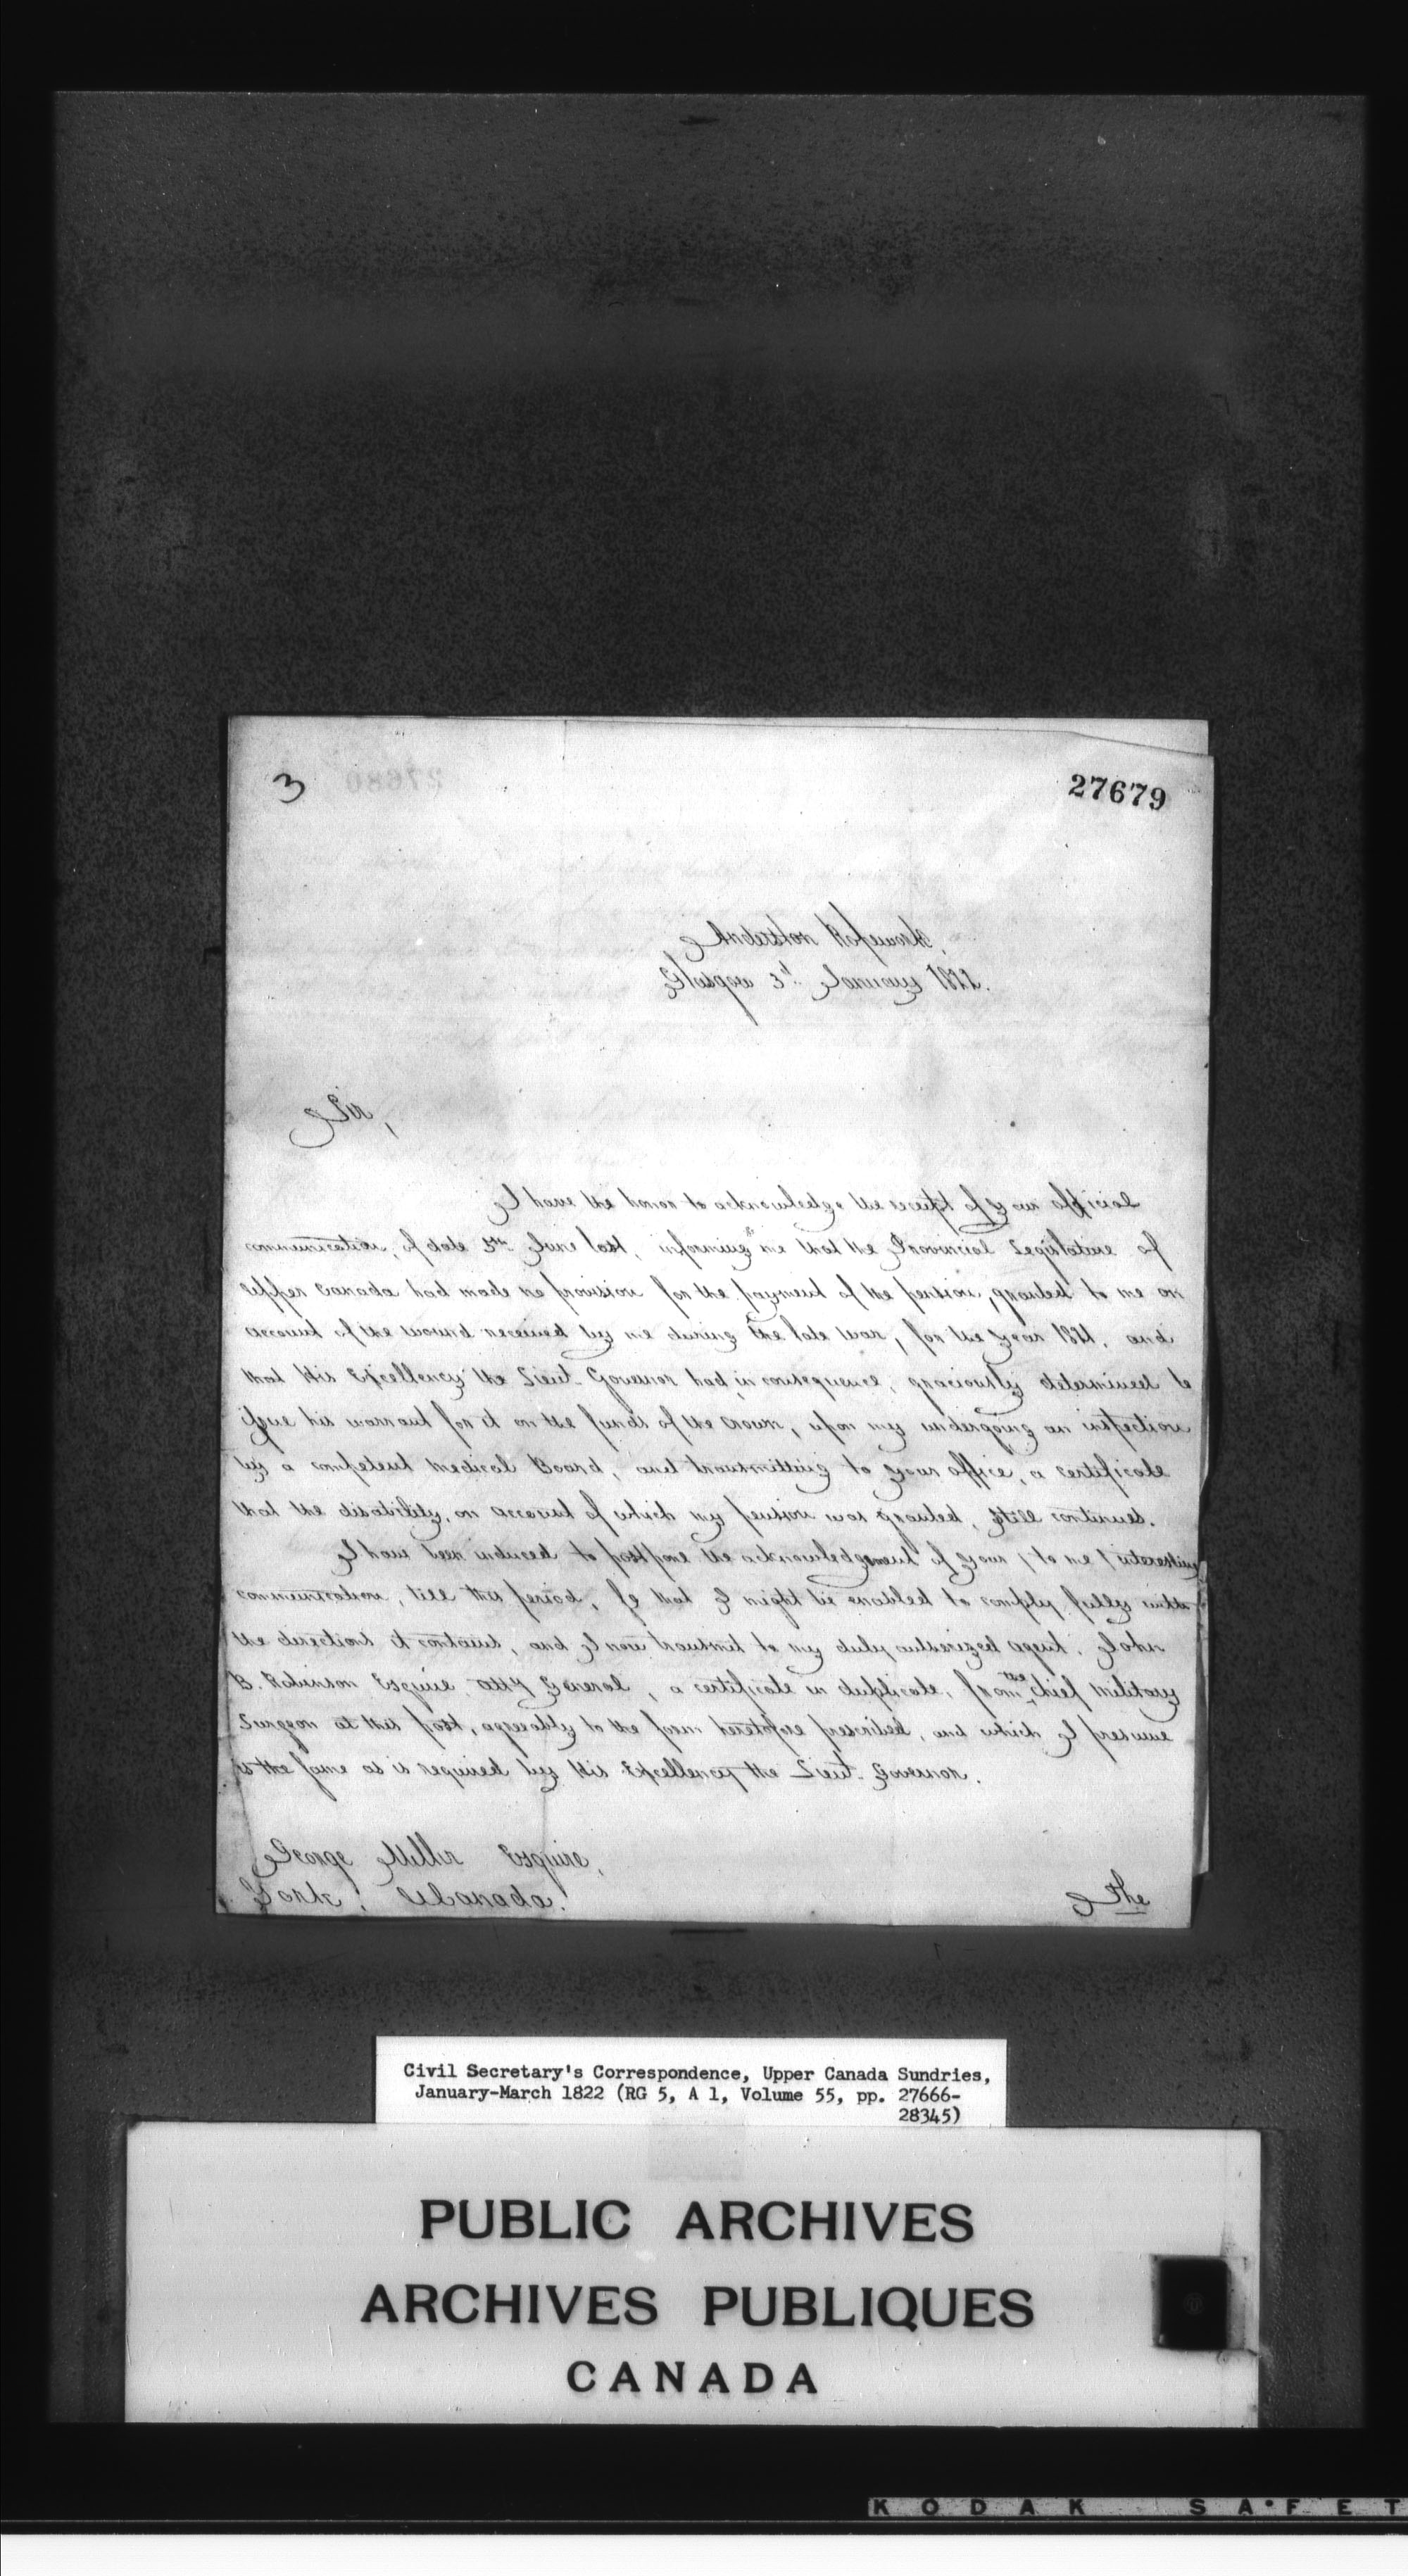 3
27679
Anderston
Glasgow 3d. January 1822.
Sir,
I have the honor to acknowledge the receipt of your official
communication, of date June last, informing me that the Provincial Legislature of
Upper Canada had made no provision for the payment of the pension, granted to me on
account of the wound received by me during the late war, for the year 1821, and
that His Excellency the Lieut. Governor had in consequence, graciously determined to
issue his warrant for it on the funds of the Crown, upon my undergoing an inspection
by a competent Medical Board, and transmitting to your office, a certificate
that the disability, on account of which my pension was granted, still continues.
I have been induced to postpone the acknowledgement of your (to me) interesting
communication, till this period, so that I might be enabled to comply fully with
the directions it contains, and I now transmit to my duly autherized agent, John
B. Robinson Esquire, Atty General, a certificate in duplicate, from the Chief Military
Surgeon at this post, agreeably to the form heretofore prescribed, and which I presume
is the same as is required by His Excellency the Lieut. Governor.
George Miller Esquire,
York! U Canada!
The
Civil Secretary's Correspondence, Upper Canada Sundries,
January-March 1822 (RG 5, A 1, Volume 55, pp. 27666-
28345)
PUBLIC ARCHIVES
ARCHIVES PUBLIQUES
CANADA
KODAK SAFET